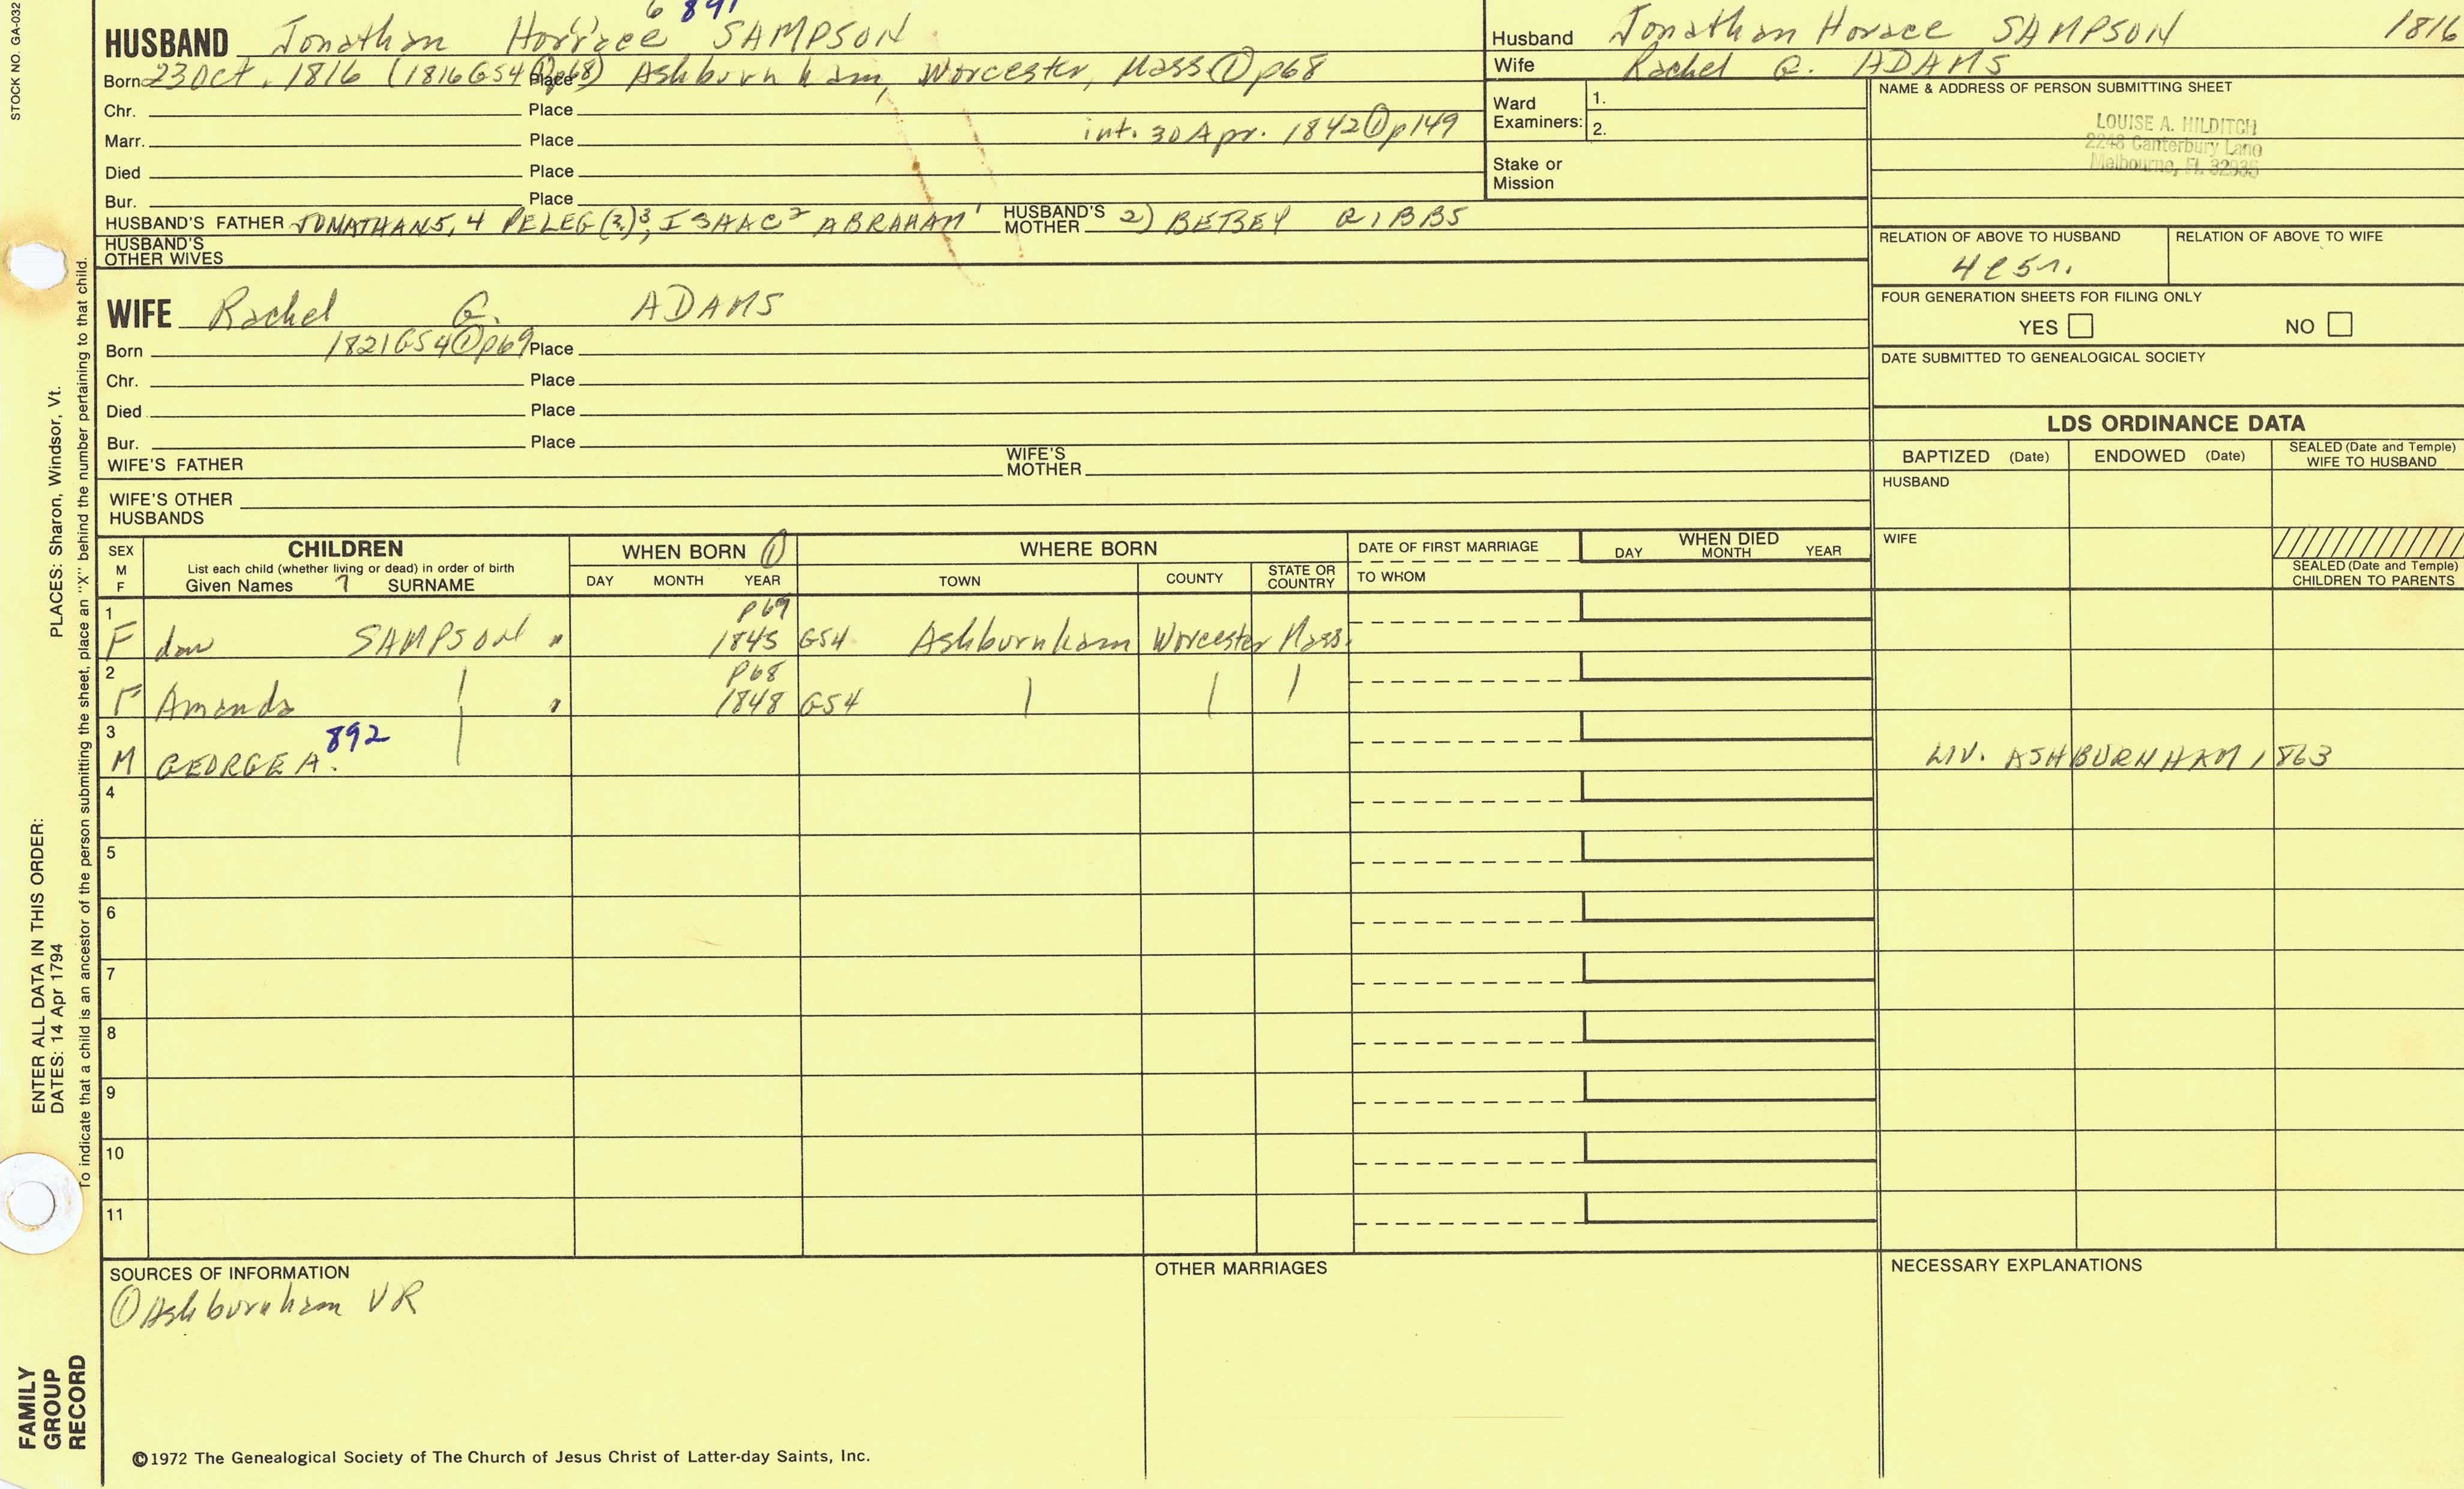 STOCK NO. GA-032
6 891
HUSBAND Jonathan Horrace SAMPSON
Born 23 Oct. 1816 (1816 GS4 ① p68) Place Ashburnham, Worcester, Mass ① p68
Chr. Place
Marr. Place int. 30 Apr. 1842 ① p149
Died Place
Bur. Place
HUSBAND'S FATHER JONATHAN 5, 4 PELEG (2.)3, ISAAC 2 ABRAHAM 1 HUSBAND'S MOTHER 2) BETSEY GIBBS
HUSBAND'S OTHER WIVES
Husband Jonathan Horace SAMPSON 1816
Wife Rachel G. ADAMS
Ward Examiners: 1.
2.
Stake or Mission
NAME & ADDRESS OF PERSON SUBMITTING SHEET
LOUISE A. HILDITCH
2248 Canterbury Lane
Melbourne, FL 32935
RELATION OF ABOVE TO HUSBAND RELATION OF ABOVE TO WIFE
4C5r.
FOUR GENERATION SHEETS FOR FILING ONLY
YES NO
DATE SUBMITTED TO GENEALOGICAL SOCIETY
WIFE Rachel G. ADAMS
Born 1821 GS4 ① p69 Place
Chr. Place
Died Place
Bur. Place
WIFE'S FATHER WIFE'S MOTHER
WIFE'S OTHER HUSBANDS
LDS ORDINANCE DATA
BAPTIZED (Date) ENDOWED (Date) SEALED (Date and Temple) WIFE TO HUSBAND
HUSBAND
WIFE
SEALED (Date and Temple) CHILDREN TO PARENTS
SEX M F
CHILDREN
List each child (whether living or dead) in order of birth
Given Names 7 SURNAME
WHEN BORN ①
DAY MONTH YEAR
WHERE BORN
TOWN COUNTY STATE OR COUNTRY
DATE OF FIRST MARRIAGE
TO WHOM
WHEN DIED
DAY MONTH YEAR
p69
1 F dau SAMPSON " 1845 GS4 Ashburnham Worcester Mass.
p68
2 F Amanda | " 1848 GS4 | | |
892
3 M GEORGE A. | LIV. ASHBURNHAM 1863
4
5
6
7
8
9
10
11
SOURCES OF INFORMATION
① Ashburnham VR
OTHER MARRIAGES
NECESSARY EXPLANATIONS
©1972 The Genealogical Society of The Church of Jesus Christ of Latter-day Saints, Inc.
FAMILY GROUP RECORD
ENTER ALL DATA IN THIS ORDER:
DATES: 14 Apr 1794 PLACES: Sharon, Windsor, Vt.
To indicate that a child is an ancestor of the person submitting the sheet, place an "X" behind the number pertaining to that child.